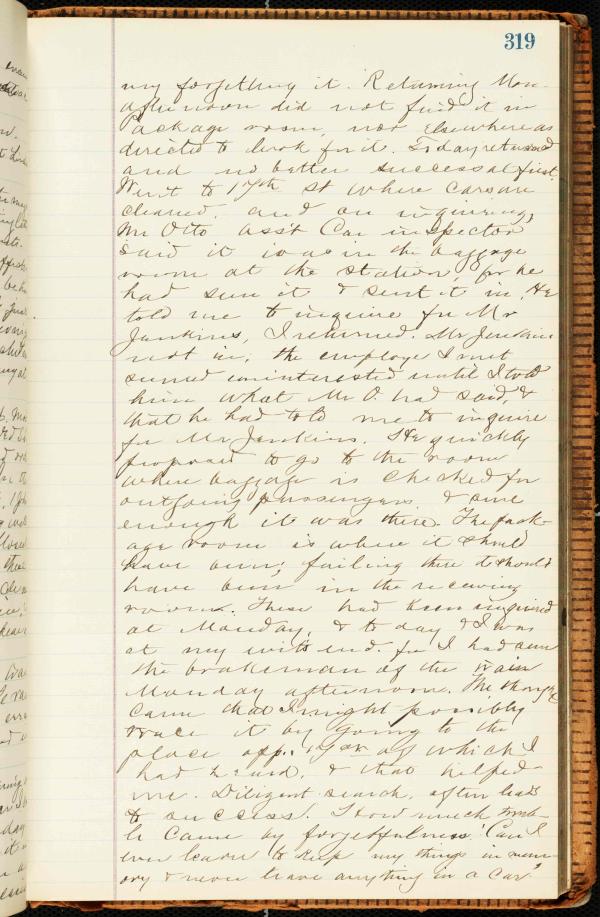 319
my forgetting it. Returning Mon-
afternoon did not find it in
Package room, nor elsewhere as
directed to look for it. Today returned
and no better success at first.
Went to 17th St where cars are
cleaned, and on inquiring,
Mr Otto ass't Car inspector
said it was in the baggage
room at the station, for he
had seen it & sent it in. He
told me to inquire for Mr
Jenkins, I returned. Mr Jenkins
not in, the employe I met
seemed uninterested until I told
him what Mr O. had said, &
that he had told me to inquire
for Mr Jenkins. He quickly
proposed to go to the room
where baggage is checked for
outgoing passengers & sure
enough it was there. The pack-
age room is where it should
have been; failing there it should
have been in the receiving
room. These had been inquired
at Monday, & to day & I was
at my wits end. for I had seen
the brakeman of the train
Monday afternoon. The thought
came that I might possibly
trace it by going to the
place opp. of which I
had heard, & that helped
me. Diligent search, often leads
to success! How much troub-
le came by forgetfulness! Can I
ever learn to keep my things in mem-
ory & never leave anything in a car?